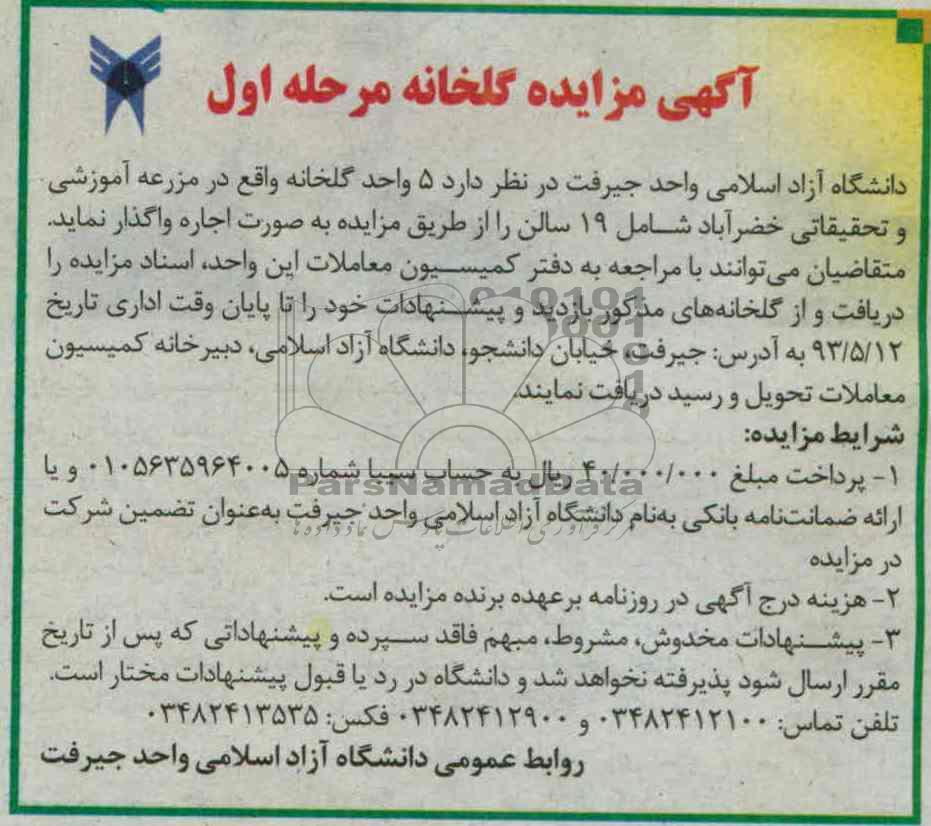 آگهی مزایده گلخانه مرحله اول
دانشگاه آزاد اسلامی واحد جیرفت در نظر دارد ۵ واحد گلخانه واقع در مزرعه آموزشی
و تحقیقاتی خضرآباد شامل ۱۹ سالن را از طریق مزایده به صورت اجاره واگذار نماید.
متقاضیان می‌توانند با مراجعه به دفتر کمیسیون معاملات این واحد، اسناد مزایده را
دریافت و از گلخانه‌های مذکور بازدید و پیشنهادات خود را تا پایان وقت اداری تاریخ
۹۳/۵/۱۲ به آدرس: جیرفت، خیابان دانشجو، دانشگاه آزاد اسلامی، دبیرخانه کمیسیون
معاملات تحویل و رسید دریافت نمایند.
شرایط مزایده:
۱- پرداخت مبلغ ۴۰/۰۰۰/۰۰۰ ریال به حساب سیبا شماره ۰۱۰۵۶۳۵۹۶۴۰۰۵ و یا
ارائه ضمانت‌نامه بانکی به‌نام دانشگاه آزاد اسلامی واحد جیرفت به‌عنوان تضمین شرکت
در مزایده
۲- هزینه درج آگهی در روزنامه برعهده برنده مزایده است.
۳- پیشنهادات مخدوش، مشروط، مبهم فاقد سپرده و پیشنهاداتی که پس از تاریخ
مقرر ارسال شود پذیرفته نخواهد شد و دانشگاه در رد یا قبول پیشنهادات مختار است.
تلفن تماس: ۰۳۴۸۲۴۱۲۱۰۰ و ۰۳۴۸۲۴۱۲۹۰۰ فکس: ۰۳۴۸۲۴۱۳۵۳۵
روابط عمومی دانشگاه آزاد اسلامی واحد جیرفت
ParsNamadData